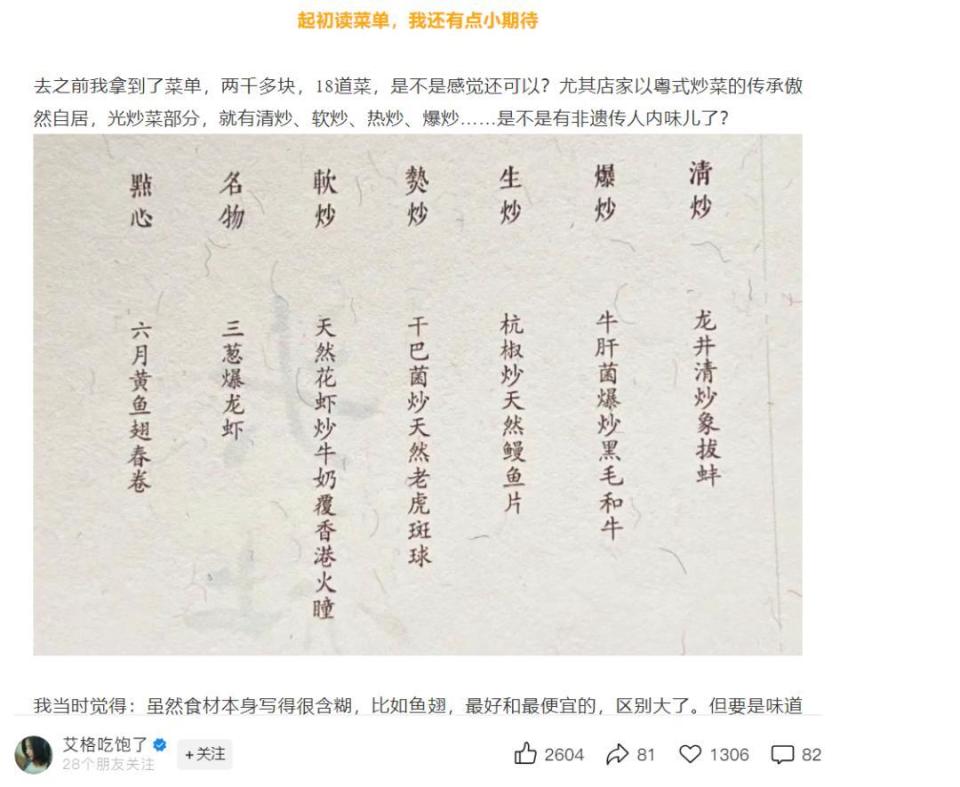 起初读菜单，我还有点小期待
去之前我拿到了菜单，两千多块，18道菜，是不是感觉还可以？尤其店家以粤式炒菜的传承傲
然自居，光炒菜部分，就有清炒、软炒、热炒、爆炒……是不是有非遗传人内味儿了？
清炒
龙井清炒象拔蚌
爆炒
牛肝菌爆炒黑毛和牛
生炒
杭椒炒天然鳗鱼片
熱炒
干巴菌炒天然老虎斑球
軟炒
天然花虾炒牛奶覆香港火瞳
名物
三葱爆龙虾
點心
六月黄鱼翅春卷
我当时觉得：虽然食材本身写得很含糊，比如鱼翅，最好和最便宜的，区别大了。但要是味道
艾格吃饱了
28个朋友关注
+关注
2604
81
1306
82